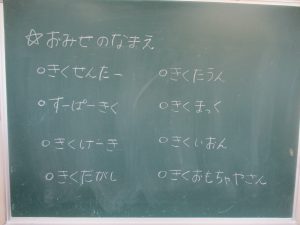 ☆おみせのなまえ
○きくせんたー
○すーぱーきく
○きくけーき
○きくだがし
○きくたうん
○きくまっく
○きくいおん
○きくおもちゃやさん